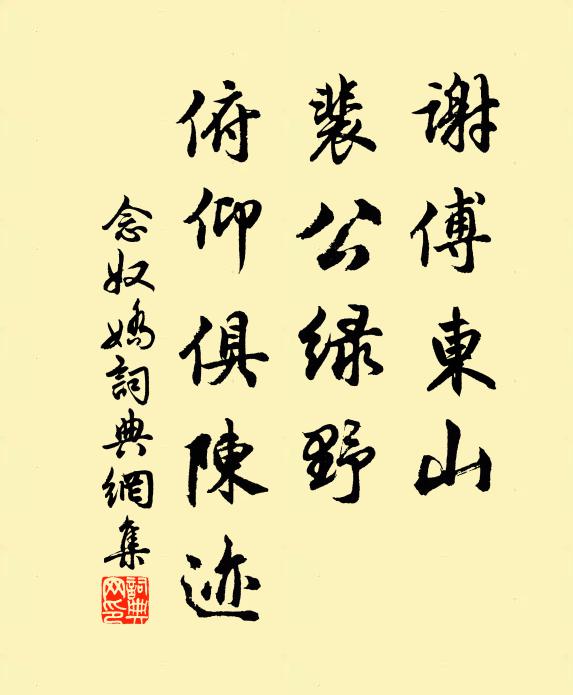 謝傅東山
裴公緑野
俯仰俱陳迹
念奴嬌詞典網集
詞典网印